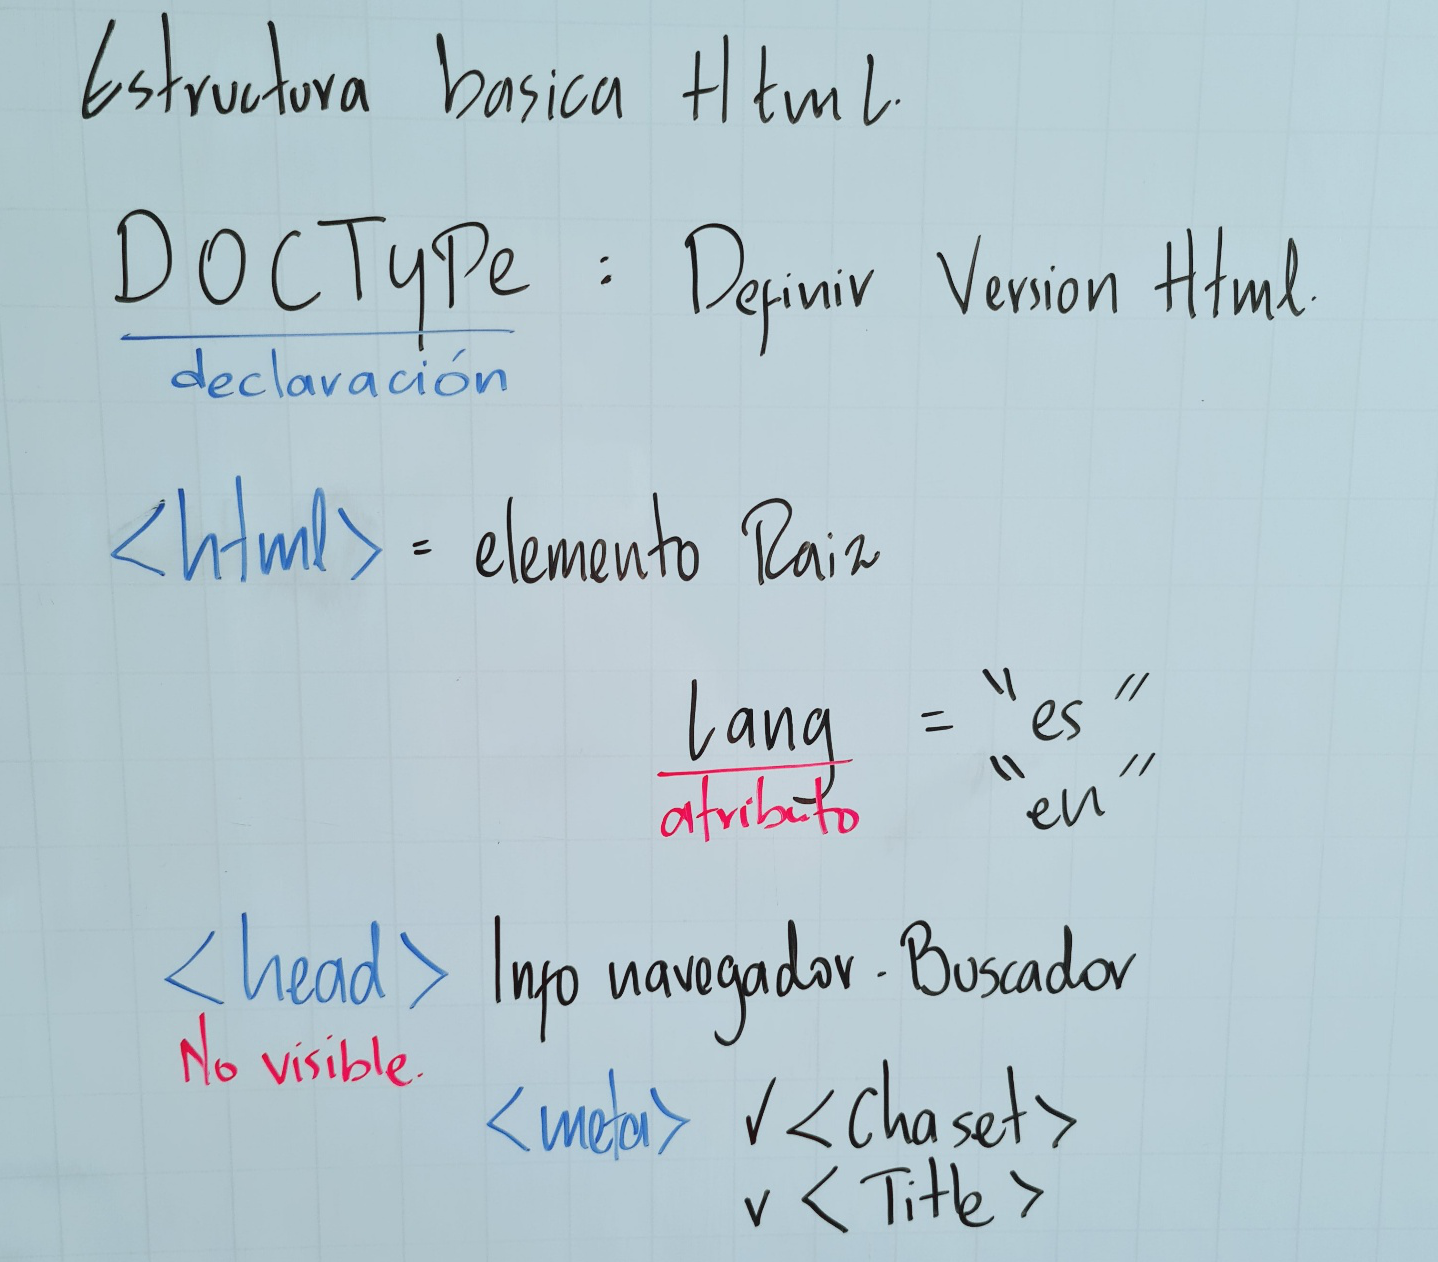 Estructura basica Html.
DOCTyPe : Definir Version Html.
declaración
<html> = elemento Raiz
Lang = "es"
atributo "en"
<head> Info navegador - Buscador
No visible.
<meta> √ <Chaset>
v <Title>